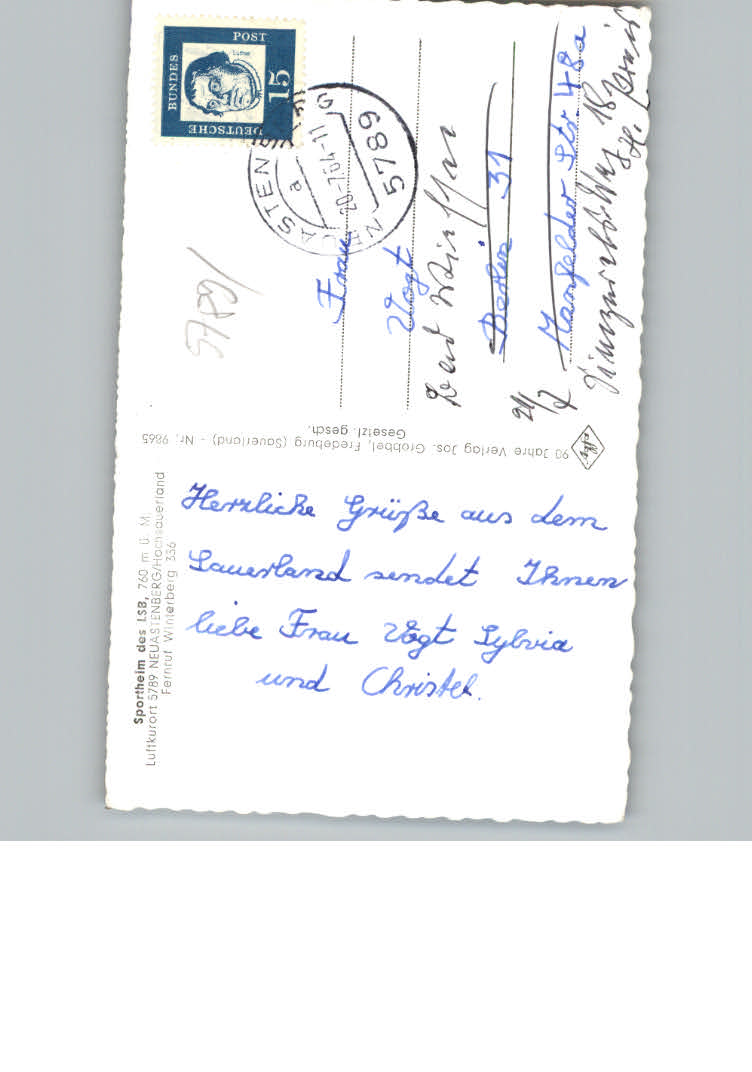 Sportheim des LSB, 760 m ü. M.
Luftkurort 5789 NEUASTENBERG/Hochsauerland
Fernruf Winterberg 336
Herzliche Grüße aus dem
Sauerland sendet Ihnen
liebe Frau Vogt Sylvia
und Christel.
90 Jahre Verlag Jos. Grobbel, Fredeburg (Sauerland) - Nr. 9865
Gesetzl. gesch.
DEUTSCHE BUNDES POST
15
Luther
5789
NEUASTEN
a
20-7.64-11
5789/
Frau
Vogt
Bad
Berlin 31
Mansfelder Str. 48a
21/7
18